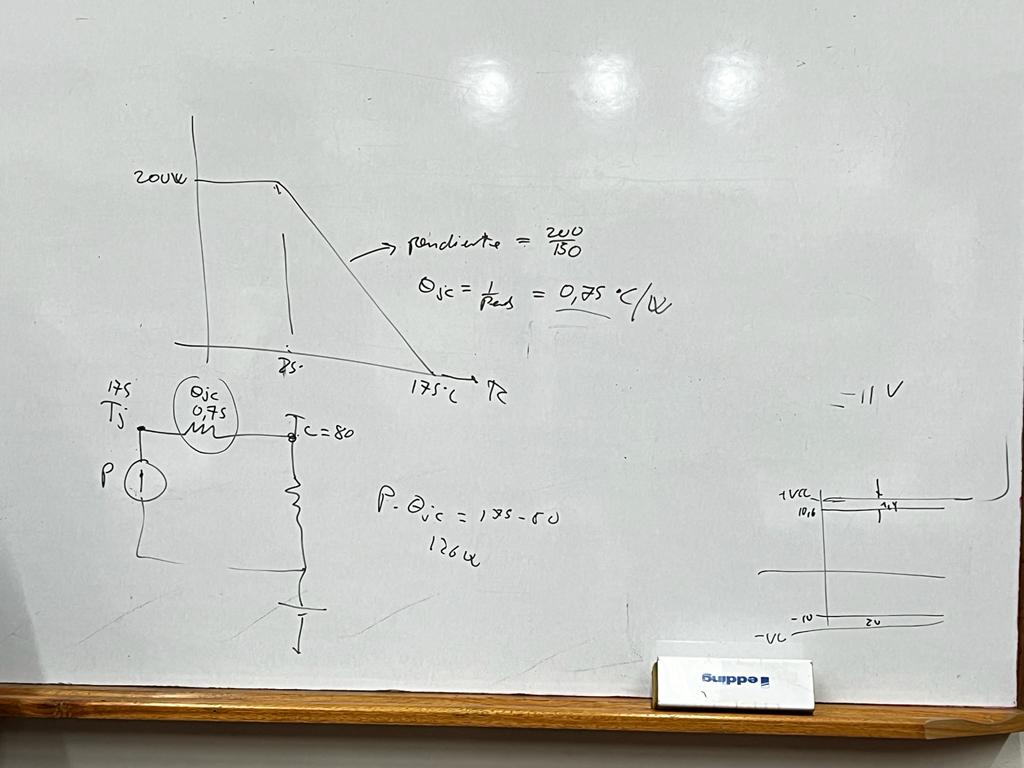 200W
pendiente = 200/150
θjc = 1/Pend = 0,75 °C/W
25°
175°C
Tc
175
Tj
θjc
0,75
Tc=80
P
P·θjc = 175-80
126W
=-11V
+VCC
10,6
1,4
-10
2V
-VCC
edding